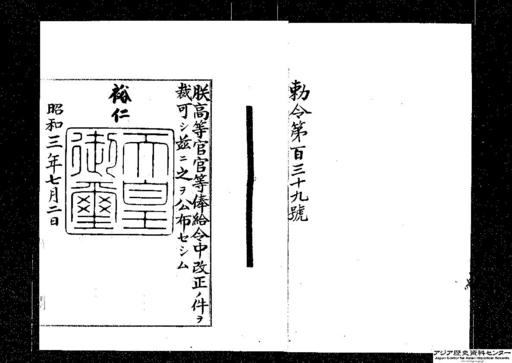 朕高等官官等俸給令中改正ノ件ヲ
裁可シ茲ニ之ヲ公布セシム
裕仁
天皇
御璽
昭和三年七月二日
勅令第百三十九號
アジア歴史資料センター
Japan Center for Asian Historical Records